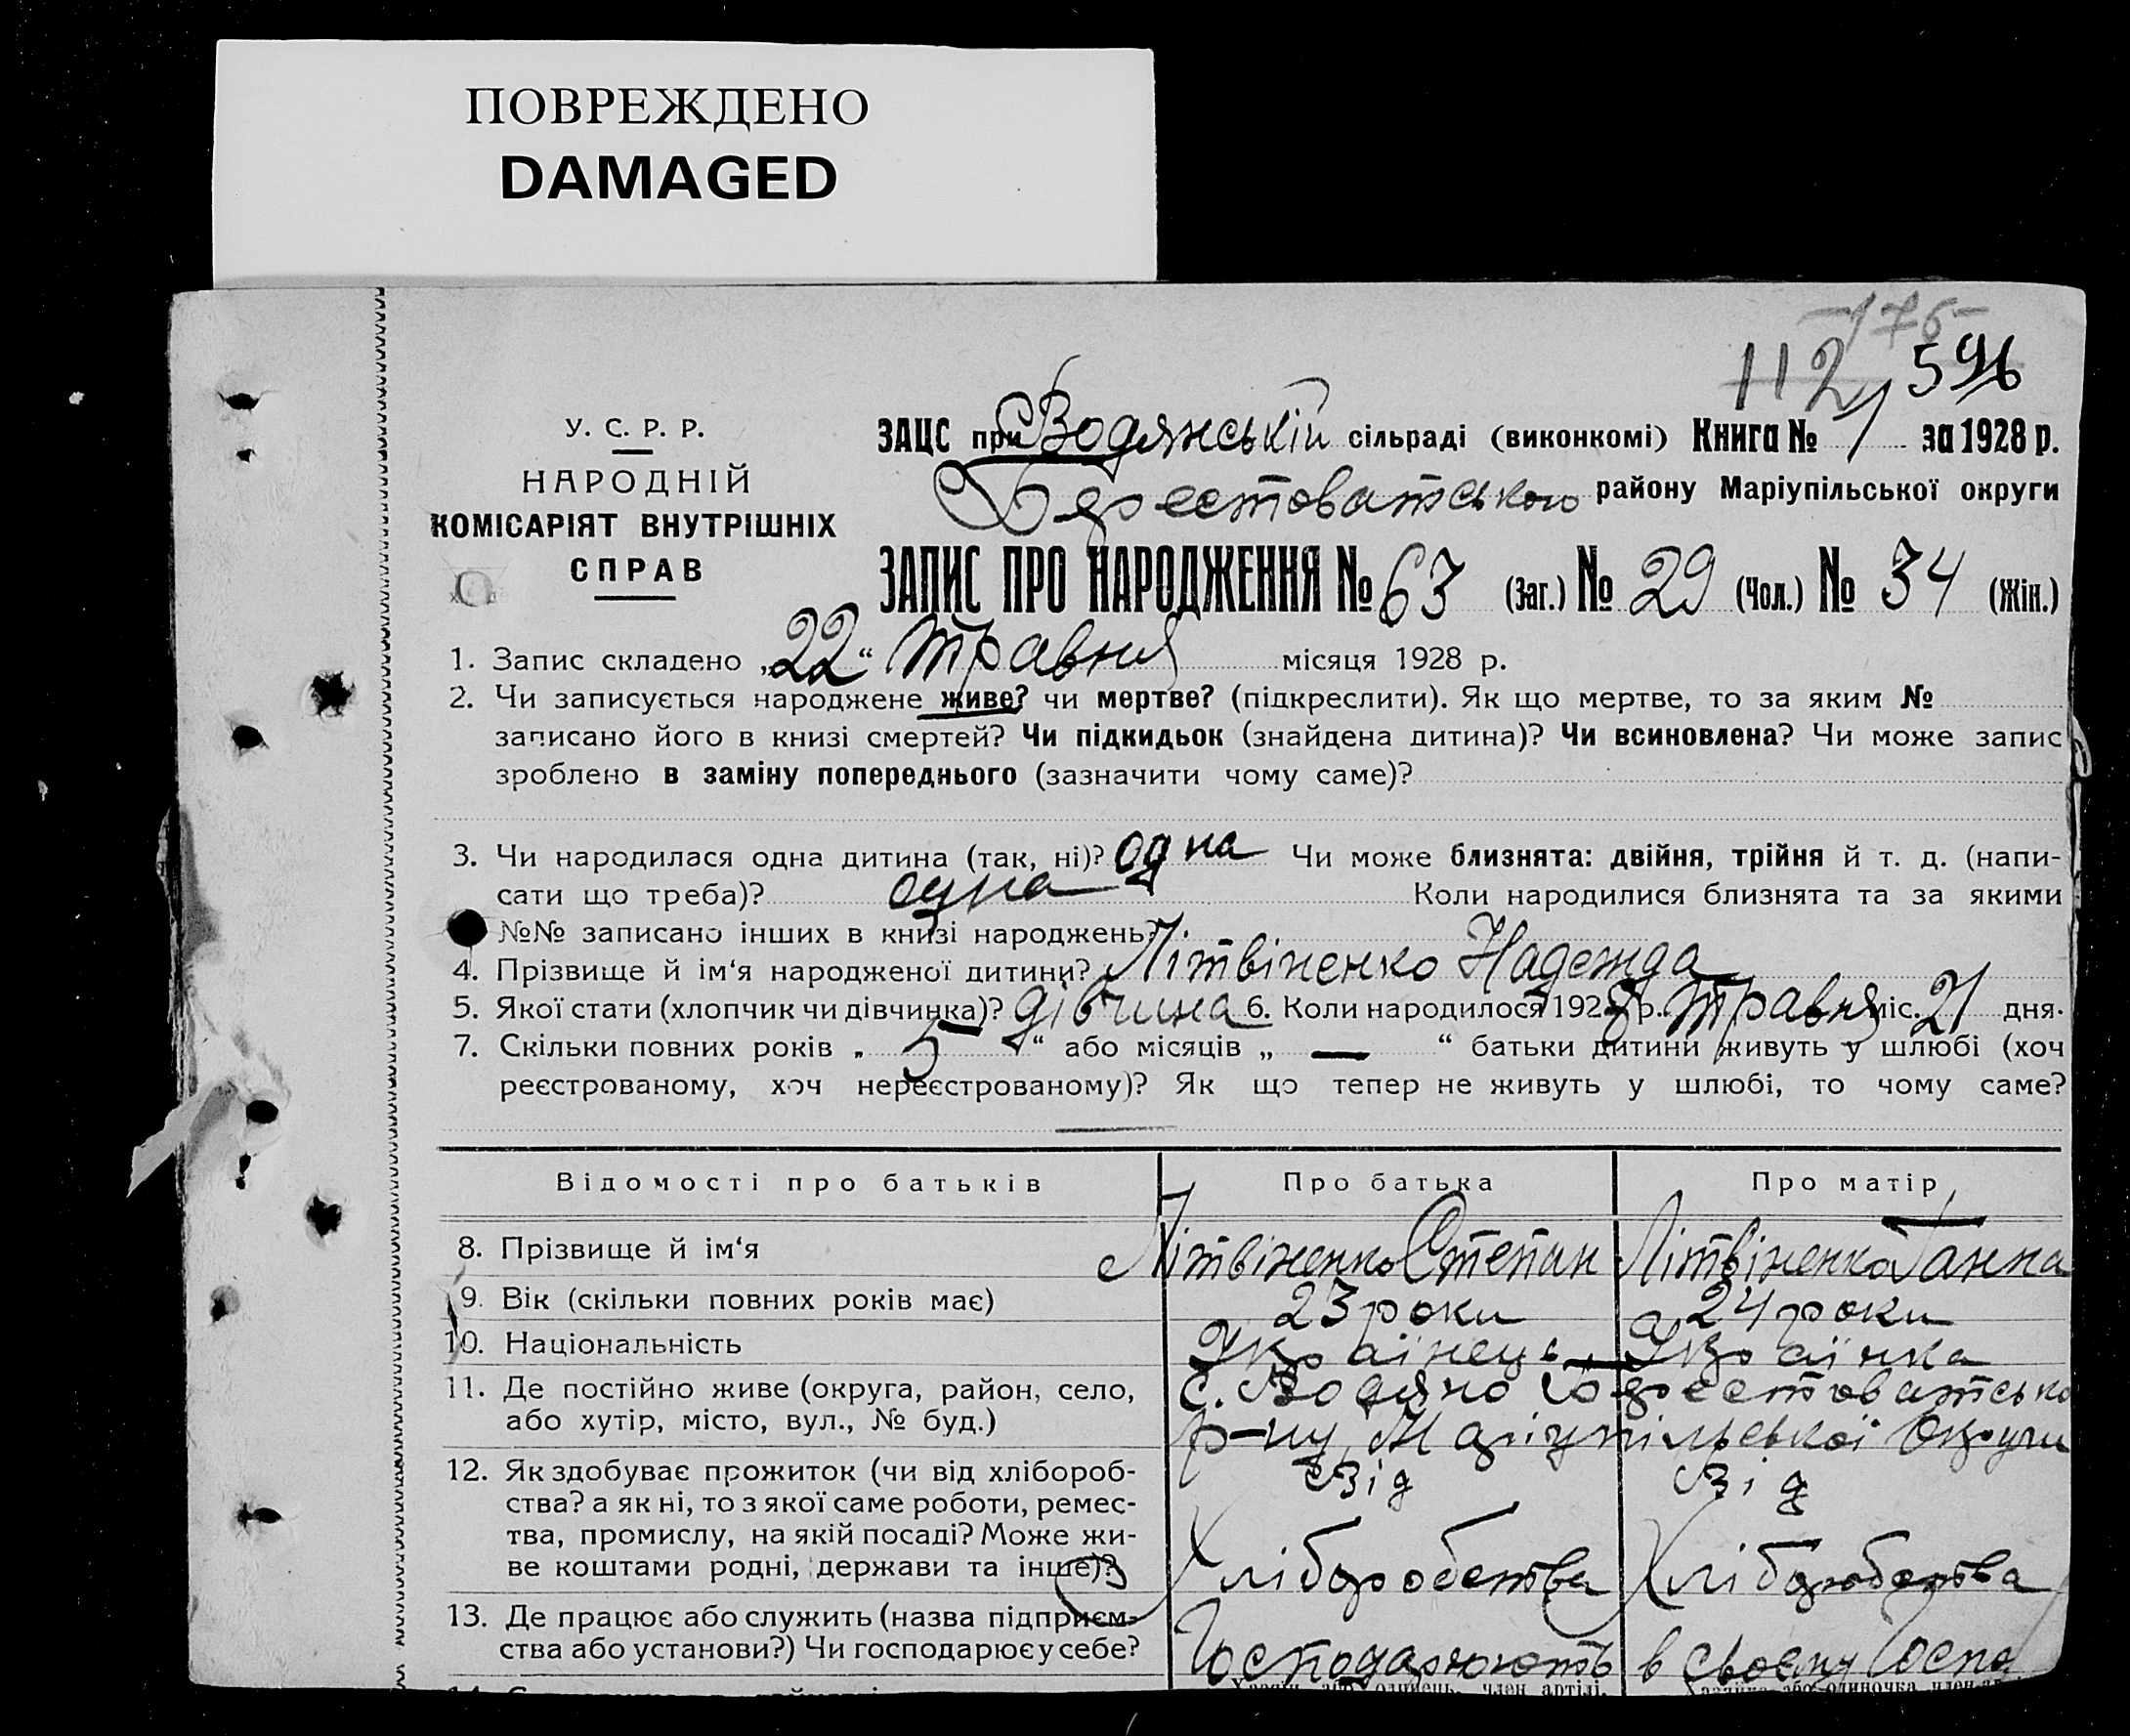 ПОВРЕЖДЕНО
DAMAGED
175
112 596
У. С. Р. Р.
НАРОДНІЙ
КОМІСАРІЯТ ВНУТРІШНІХ
СПРАВ
ЗАЦС при Водянській сільраді (виконкомі) Книга № 1 за 1928 р.
Берестоватського району Маріупільської округи
ЗАПИС ПРО НАРОДЖЕННЯ № 63 (Заг.) № 29 (Чол.) № 34 (Жін.)
1. Запис складено „22“ травня місяця 1928 р.
2. Чи записується народжене живе? чи мертве? (підкреслити). Як що мертве, то за яким №
записано його в книзі смертей? Чи підкидьок (знайдена дитина)? Чи всиновлена? Чи може запис
зроблено в заміну попереднього (зазначити чому саме)?
3. Чи народилася одна дитина (так, ні)? одна Чи може близнята: двійня, трійня й т. д. (напи-
сати що треба)? одна Коли народилися близнята та за якими
№№ записано інших в книзі народжень?
4. Прізвище й ім‘я народженої дитини? Літвіненко Надежда
5. Якої стати (хлопчик чи дівчинка)? дівчина 6. Коли народилося 1928 р. травня міс. 21 дня.
7. Скільки повних років „ 5 “ або місяців „ — “ батьки дитини живуть у шлюбі (хоч
реєстрованому, хоч нереєстрованому)? Як що тепер не живуть у шлюбі, то чому саме?
Відомості про батьків Про батька Про матір
8. Прізвище й ім‘я Літвіненко Степан Літвіненко Ганна
9. Вік (скільки повних років має) 23 роки 24 роки
10. Національність Українець Українка
11. Де постійно живе (округа, район, село, с. Водяно Берестоватсько
або хутір, місто, вул., № буд.) р-ну Маріупільської Округи
12. Як здобуває прожиток (чи від хлібороб- Від Від
ства? а як ні, то з якої саме роботи, ремес-
тва, промислу, на якій посаді? Може жи- Хліборобства Хліборобства
ве коштами родні, держави та інше)?
13. Де працює або служить (назва підприєм-
ства або установи?) Чи господарює у себе? Господарюють в своєму Госпо